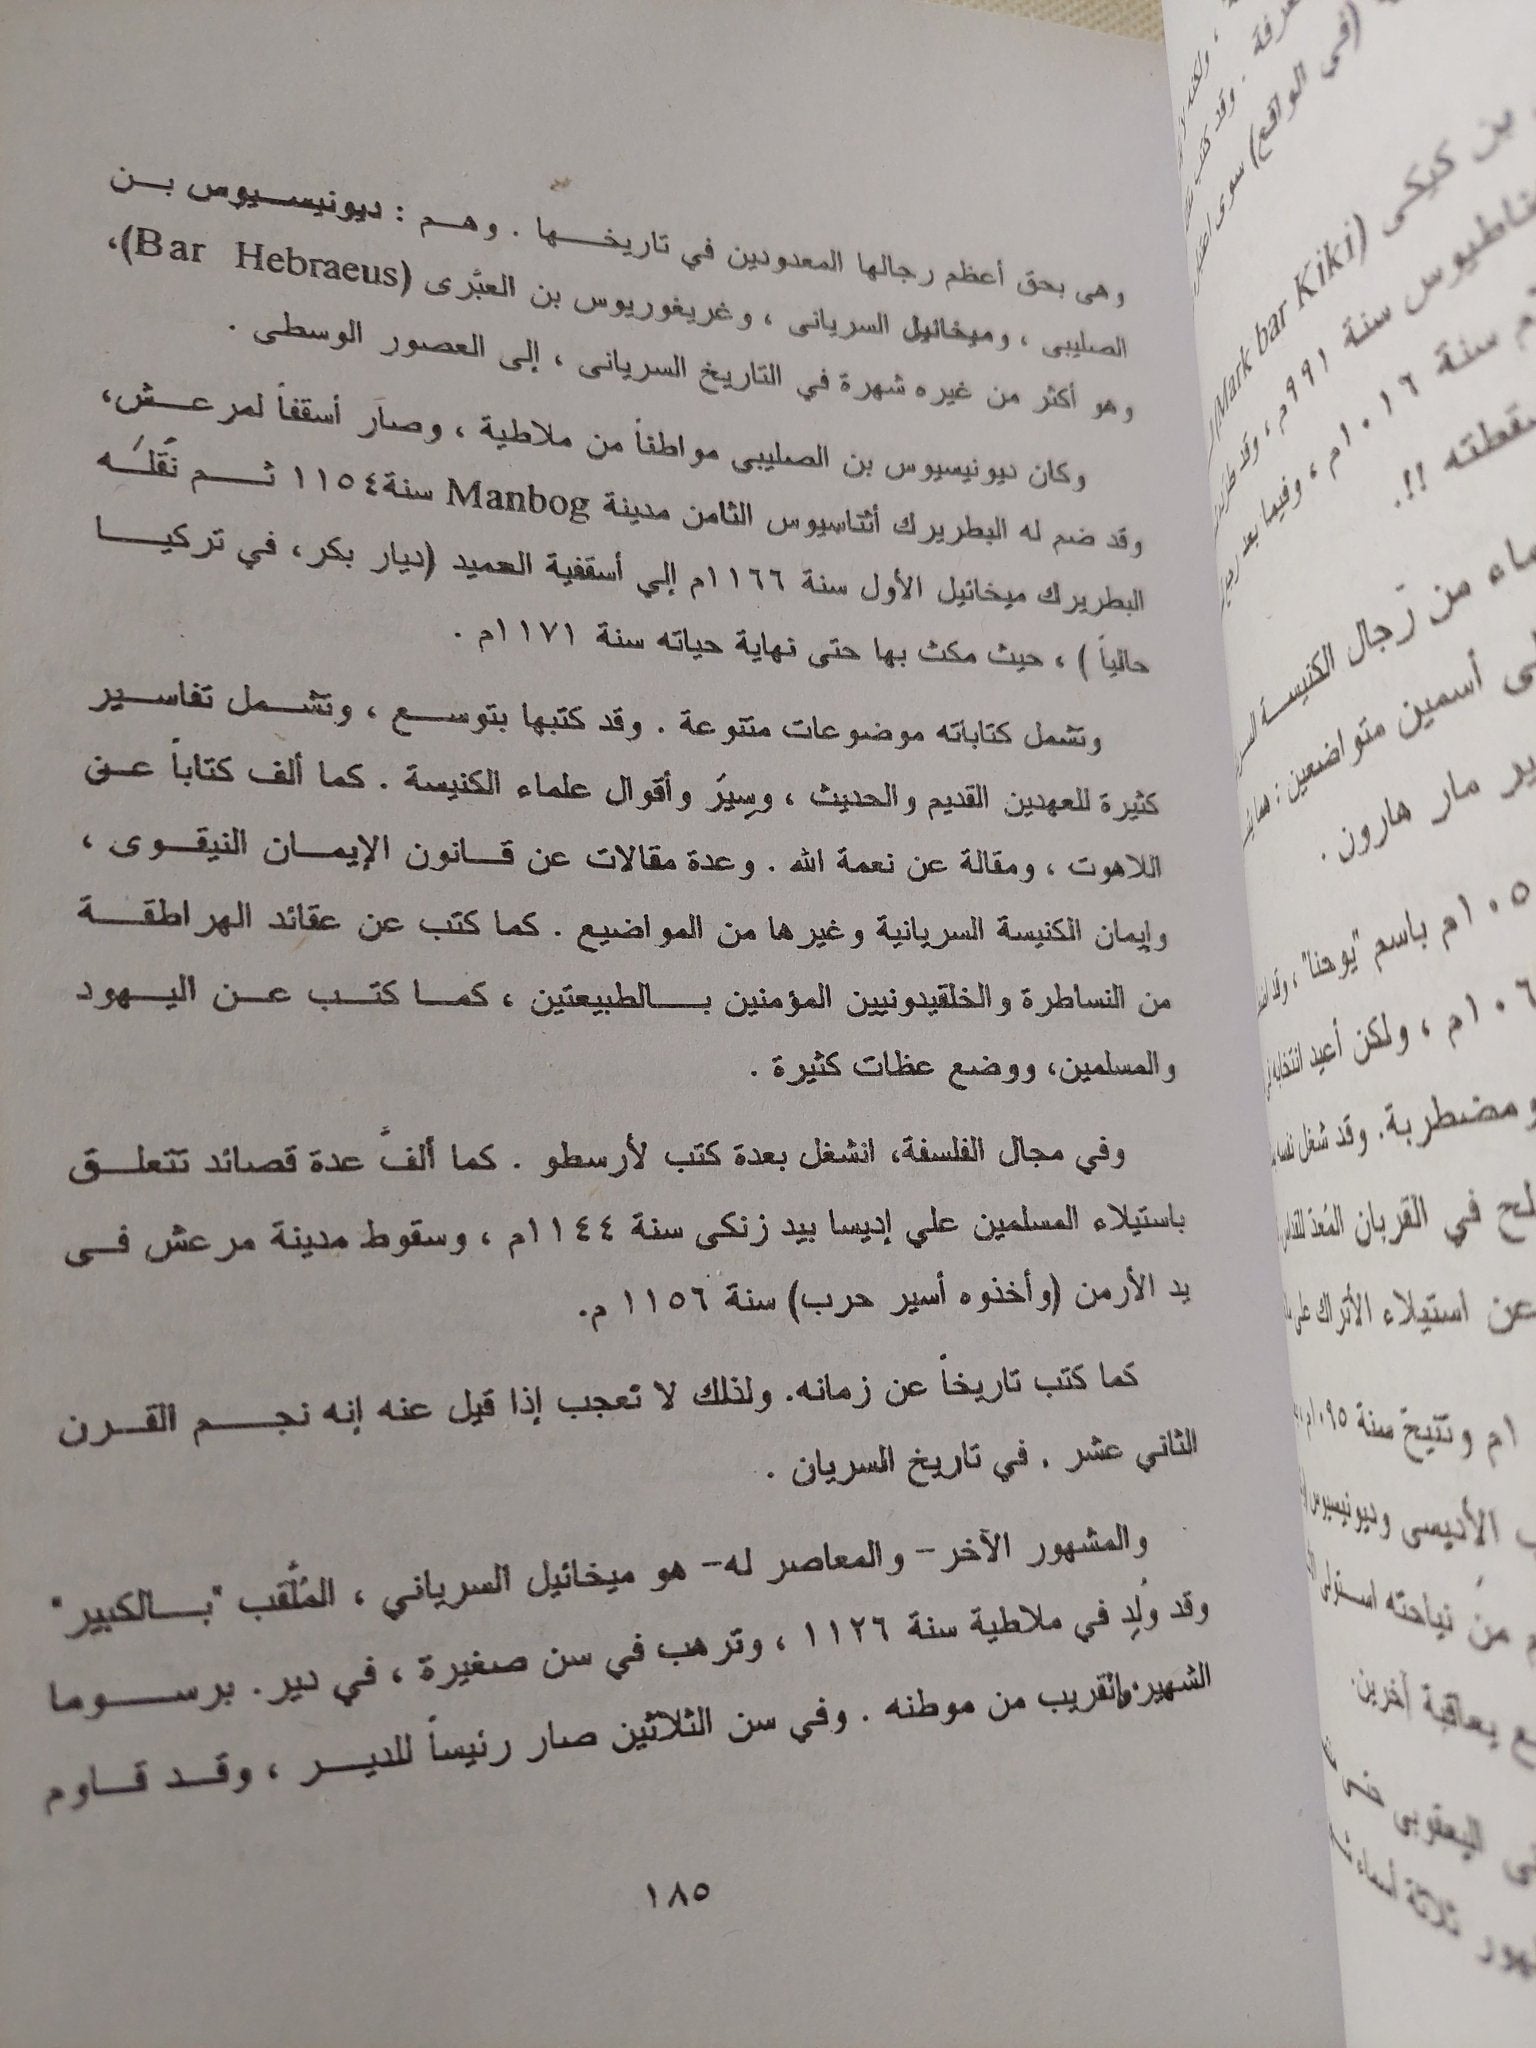 وهى بحق أعظم رجالها المعدودين في تاريخـــها . وهـم : ديونيسـيوس بـن
الصليبى ، وميخائيل السريانى ، وغريغوريوس بن العبَّرى (Bar Hebraeus)،
وهو أكثر من غيره شهرة في التاريخ السريانى ، إلى العصور الوسطى .
وكان ديونيسيوس بن الصليبى مواطناً من ملاطية ، وصار أسقفاً لمرعـش،
وقد ضم له البطريرك أثناسيوس الثامن مدينة Manbog سنة١١٥٤ ثـــم نَقَلـَه
البطريرك ميخائيل الأول سنة ١١٦٦م إلي أسقفية العميد (ديار بكر، في تركيـــا
حالياً ) ، حيث مكث بها حتى نهاية حياته سنة ١١٧١م .
وتشمل كتاباته موضوعات متنوعة . وقد كتبها بتوســـع ، وتشـــمل تفاســـير
كثيرة للعهدين القديم والحديث ، وسِيَر وأقوال علماء الكنيسة . كما ألف كتاباً عـن
اللاهوت ، ومقالة عن نعمة الله . وعدة مقالات عن قـــانون الإيمـــان النيقـوى ،
وإيمان الكنيسة السريانية وغيرها من المواضيع . كما كتب عن عقائد الهراطقـــة
من النساطرة والخلقيدونيين المؤمنين بـــالطبيعتين ، كمـا كتـب عـن اليـهود
والمسلمين، ووضع عظات كثيرة .
وفي مجال الفلسفة، انشغل بعدة كتب لأرسطو . كما ألفَّ عدة قصائد تتعلـــق
باستيلاء المسلمين علي إديسا بيد زنكى سنة ١١٤٤م ، وسقوط مدينة مرعش فـى
يد الأرمن (وأخذوه أسير حرب) سنة ١١٥٦ م.
كما كتب تاريخاً عن زمانه. ولذلك لا تعجب إذا قيل عنه إنه نجـــم القـرن
الثاني عشر . في تاريخ السريان .
والمشهور الآخر- والمعاصر له- هو ميخائيل السرياني ، المُلَّقب "بـــالكبير"
وقد وُلِد في ملاطية سنة ١١٢٦ ، وترهب في سن صغيرة ، في دير. برســـوما
الشهير والقريب من موطنه . وفي سن الثلاثين صار رئيساً للديـر ، وقـد قـاوم
١٨٥
(في الواقع) سوى
بن كيكى (Mark bar Kiki)
سنة ٩٩١م ، وقد
سنة ١٠١٦م ، وفيما بعد
!!.
من رجال الكنيسة
أسمين متواضعين :
مار هارون .
باسم "يوحنا" ،
، ولكن أعيد انتخابه
ومضطربة. وقد شغل نفسه
في القربان المُعد
عن استيلاء الأتراك على
وتنيح سنة ١٠٩٥م
الأديسى وديونيسيوس
من نياحته استولى
يعاقبة آخرين
اليعقوبى حتى
ثلاثة أسماء